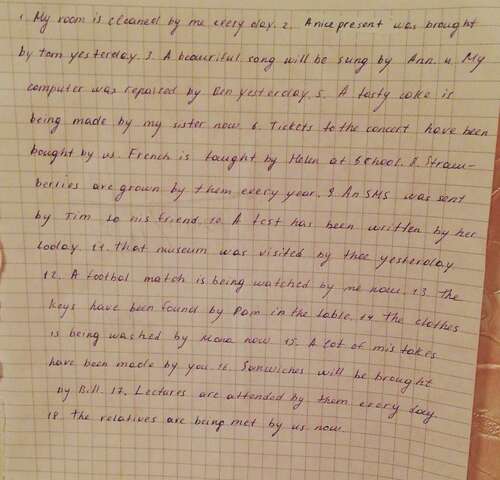 1. My room is cleaned by me every day. 2. A nice present was brought
by tom yesterday. 3. A beautiful song will be sung by Ann. 4. My
computer was repaired by Ben yesterday. 5. A tasty cake is
being made by my sister now. 6. Tickets to the concert have been
bought by us. French is taught by Helen at School. 8. Straw-
berries are grown by them every year. 9. An SMS was sent
by Tim to his friend. 10. A test has been written by her
today. 11. that museum was visited by thee yesterday
12. A footbal match is being watched by me now. 13. the
keys have been found by Pam in the table. 14 the clothes
is being washed by Mama now 15. A lot of mistakes
have been made by you. 16. Sandwiches will be brought
by Bill. 17. Lectures are attended by them every day
18. the relatives are being met by us now.